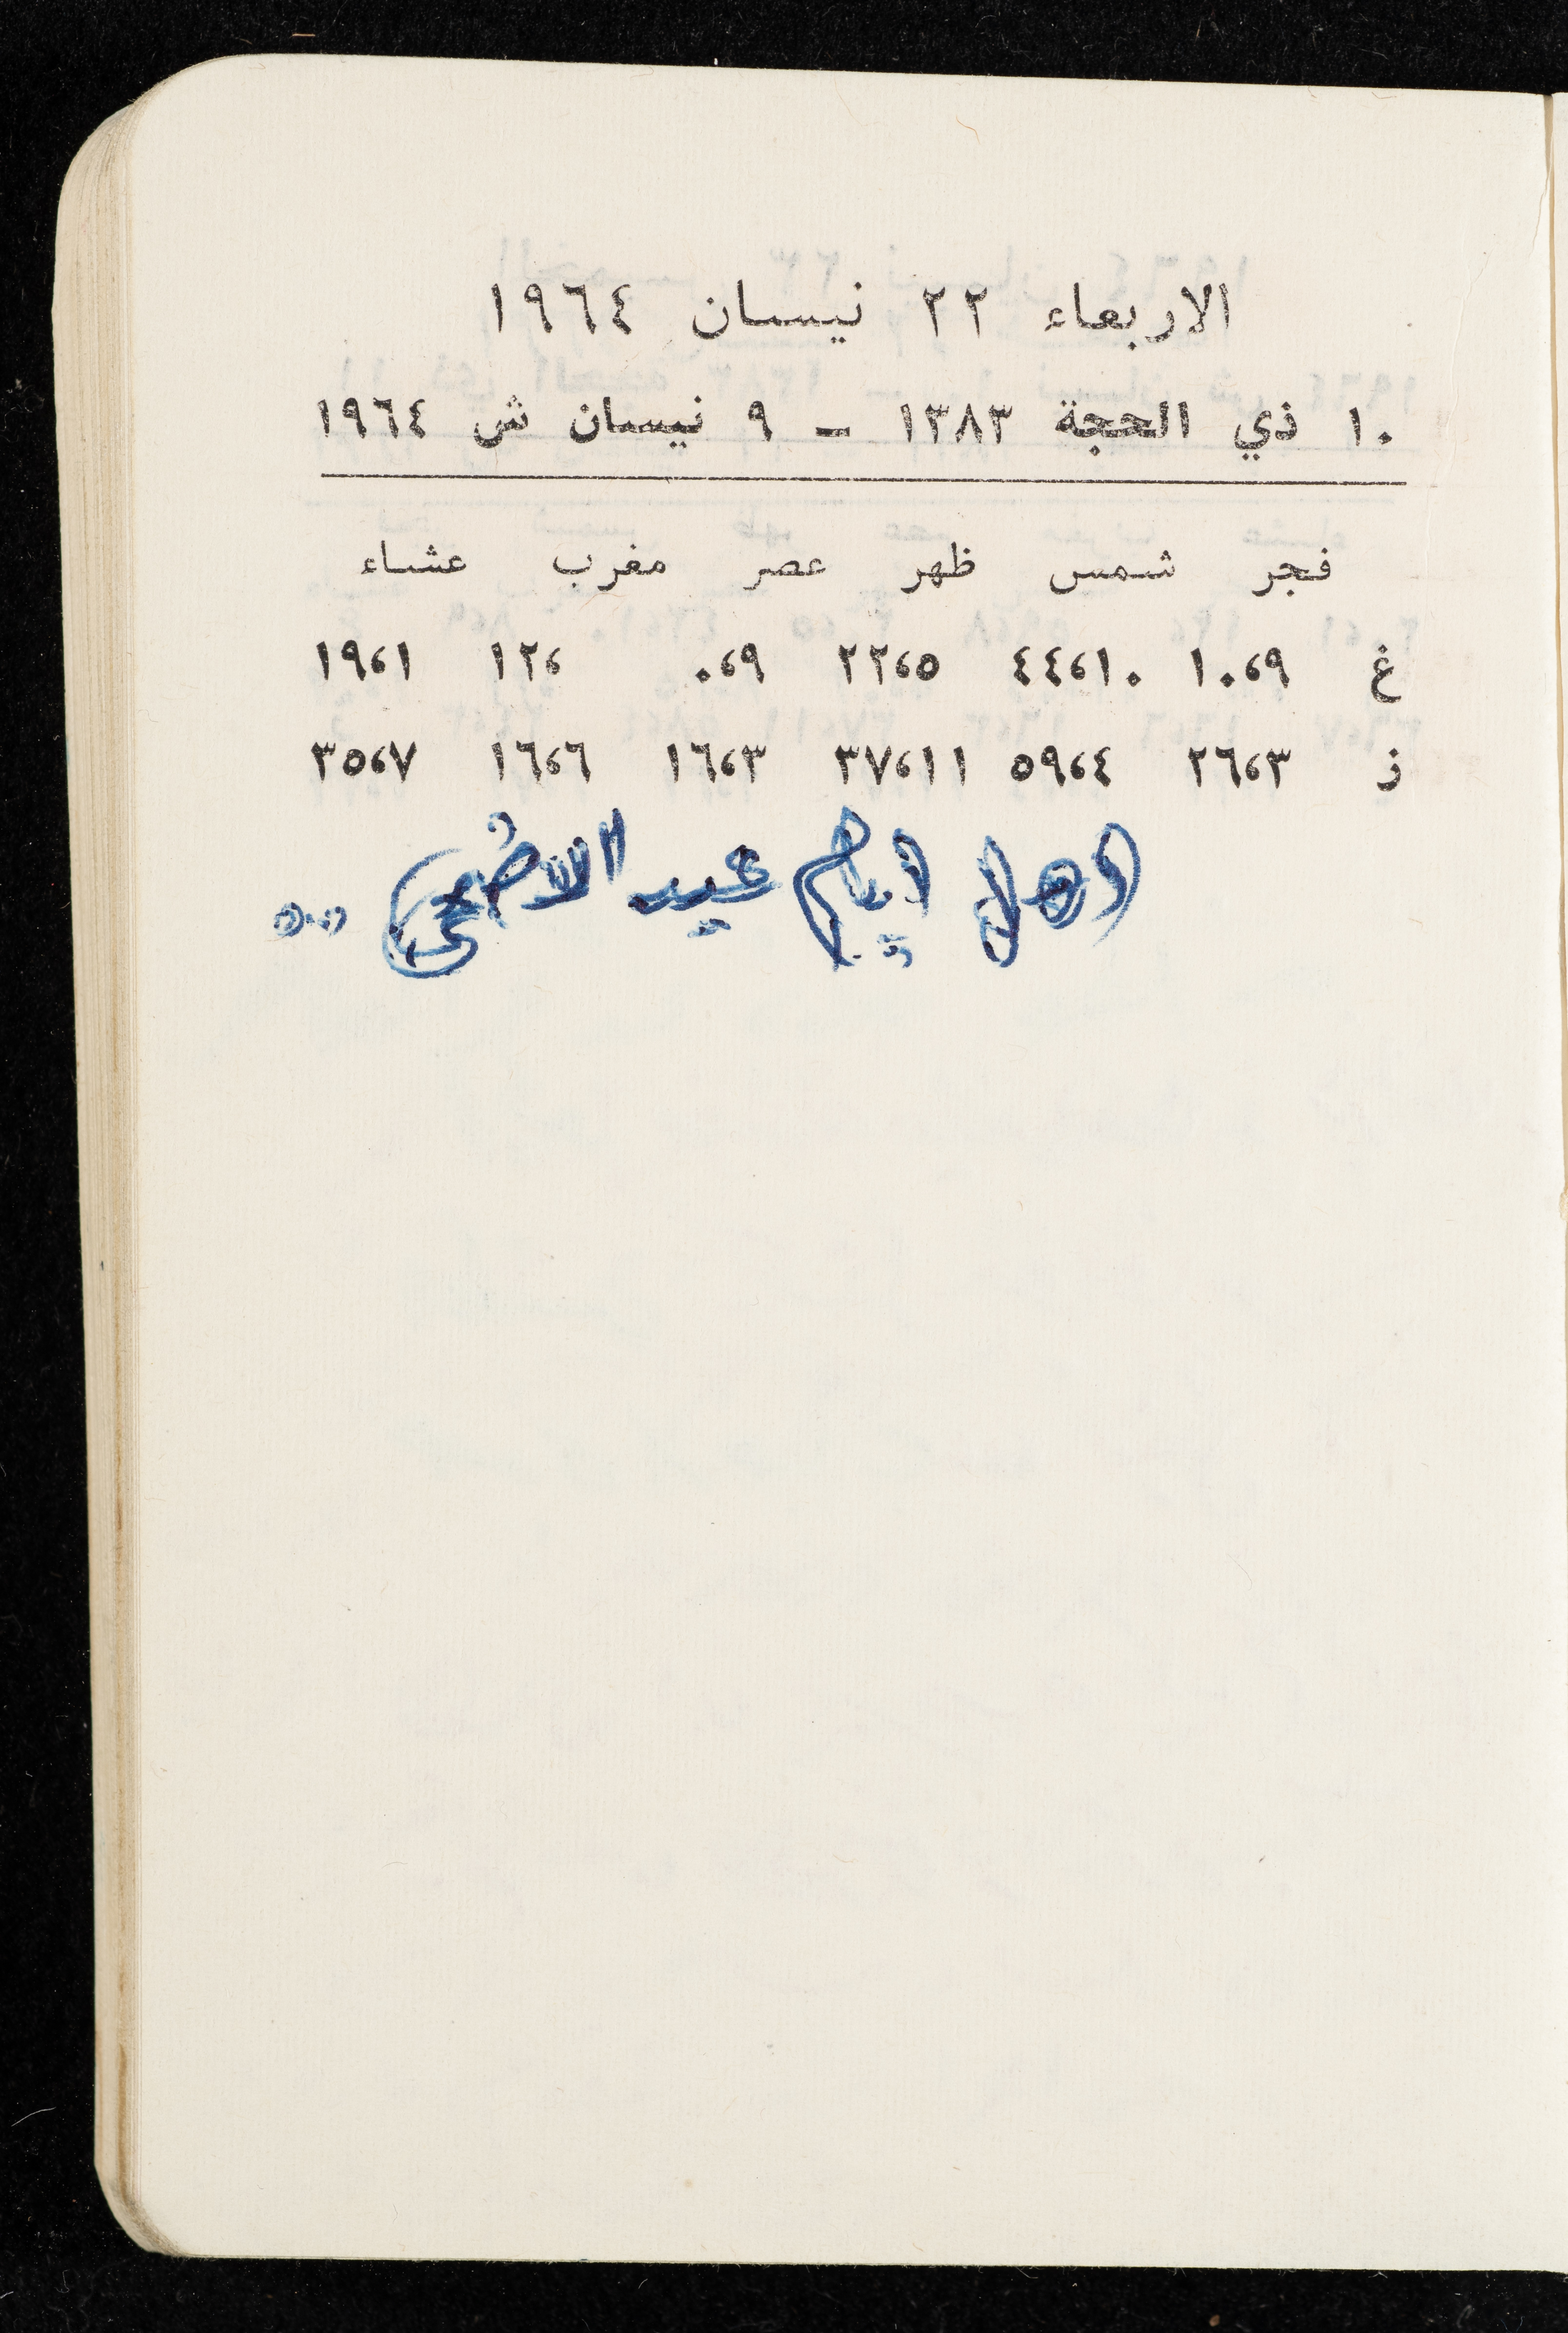 الاربعاء ٢٢ نيسان ١٩٦٤
١٠ ذي الحجة ١٣٨٣ – ٩ نيسان ش ١٩٦٤
فجر شمس ظهر عصر مغرب عشاء
غ ١٠،٩ ٤٤،١٠ ٢٢،٥ ٠،٩ ١٢، ١٩،١
ز ٢٦،٣ ٥٩،٤ ٣٧،١١ ١٦،٣ ١٦،٦ ٣٥،٧
اول ايام عيد الاضحى ..